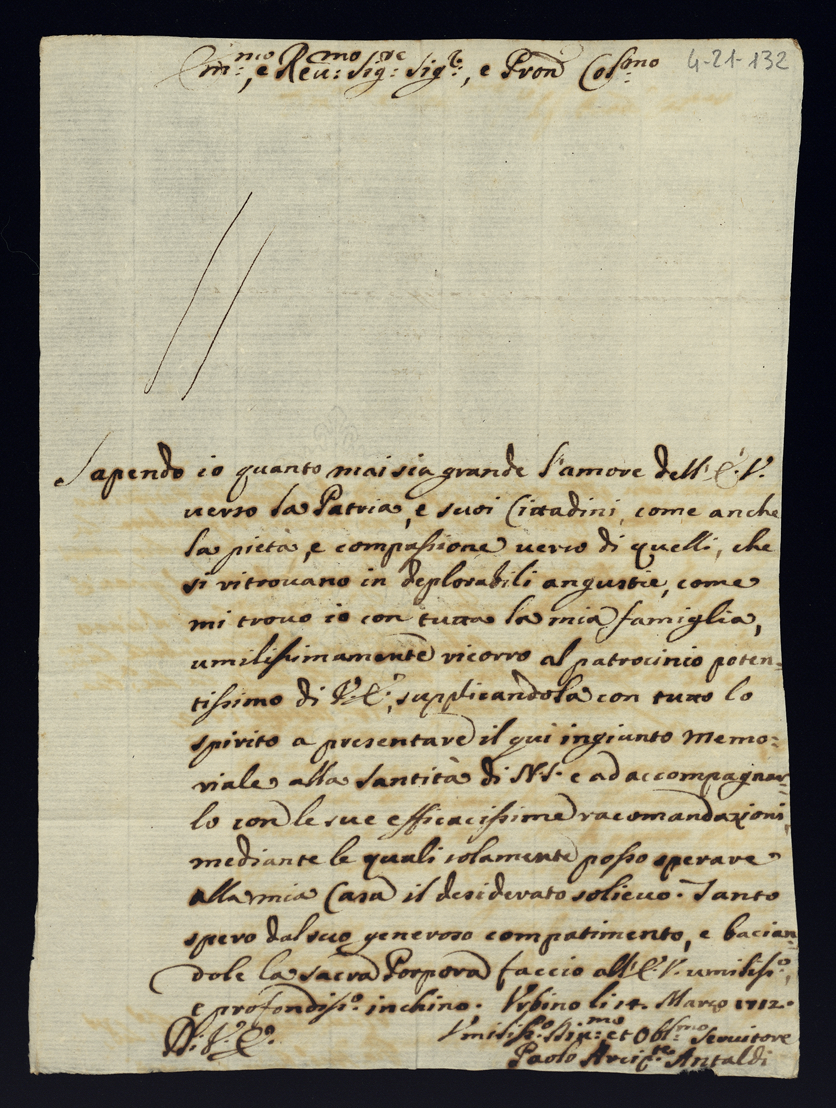 Em.mo, e Reu.mo Sig.re Sig.re, e Pron Col.mo
4-21-132
Sapendo io quanto mai sia grande l'amore dell'E.V.
verso la Patria, e suoi Cittadini, come anche
la pietà, e compassione verso di quelli, che
si ritrovano in deplorabili angustie, come
mi trovo io con tutta la mia famiglia,
umilissimamente ricorro al patrocinio poten-
tissimo di V.E., supplicandola con tutto lo
spirito a presentare il qui ingiunto memo=
riale alla Santità di N.S. e ad accompagnar=
lo con le sue efficacissime racomandazioni,
mediante le quali solamente posso sperare
alla mia Casa il desiderato solievo. Tanto
spero dal suo generoso compatimento, e bacian=
dole la sacra Porpora faccio all'E.V. umiliss.o,
e profondiss.o inchino. Urbino li 14 Marzo 1712.
Di V.E.
Umiliss.o et Obl.mo Servitore
Paolo Antaldi